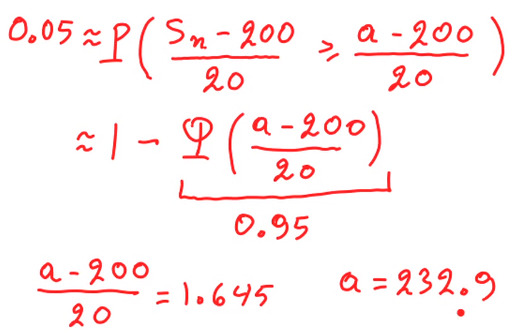 0.05 ≈ P( (Sn - 200)/20 ≥ (a - 200)/20 )
≈ 1 - Φ( (a - 200)/20 )
0.95
(a - 200)/20 = 1.645 a = 232.9